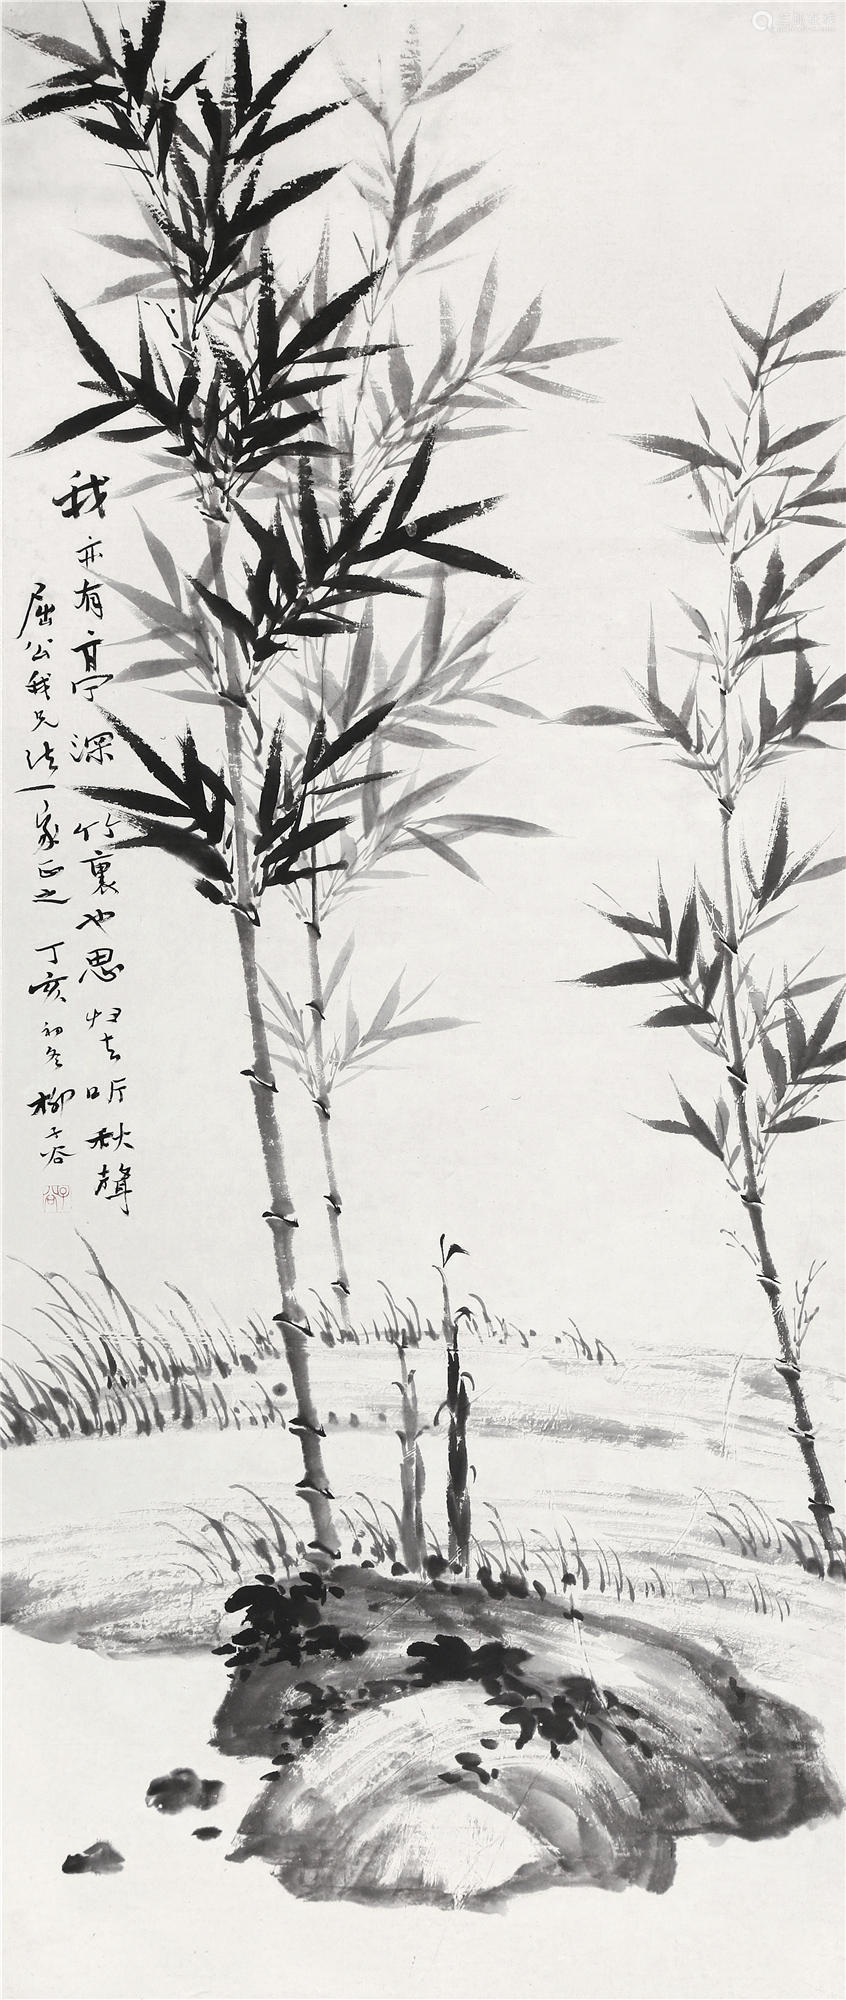 我亦有亭深竹裏也思归去听秋聲
屈公我兄法家正之 丁亥初冬 柳子谷
子谷